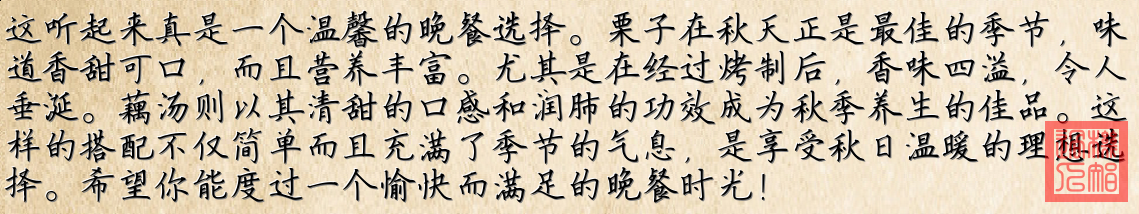 这听起来真是一个温馨的晚餐选择。栗子在秋天正是最佳的季节，味
道香甜可口，而且营养丰富。尤其是在经过烤制后，香味四溢，令人
垂涎。藕汤则以其清甜的口感和润肺的功效成为秋季养生的佳品。这
样的搭配不仅简单而且充满了季节的气息，是享受秋日温暖的理想选
择。希望你能度过一个愉快而满足的晚餐时光！